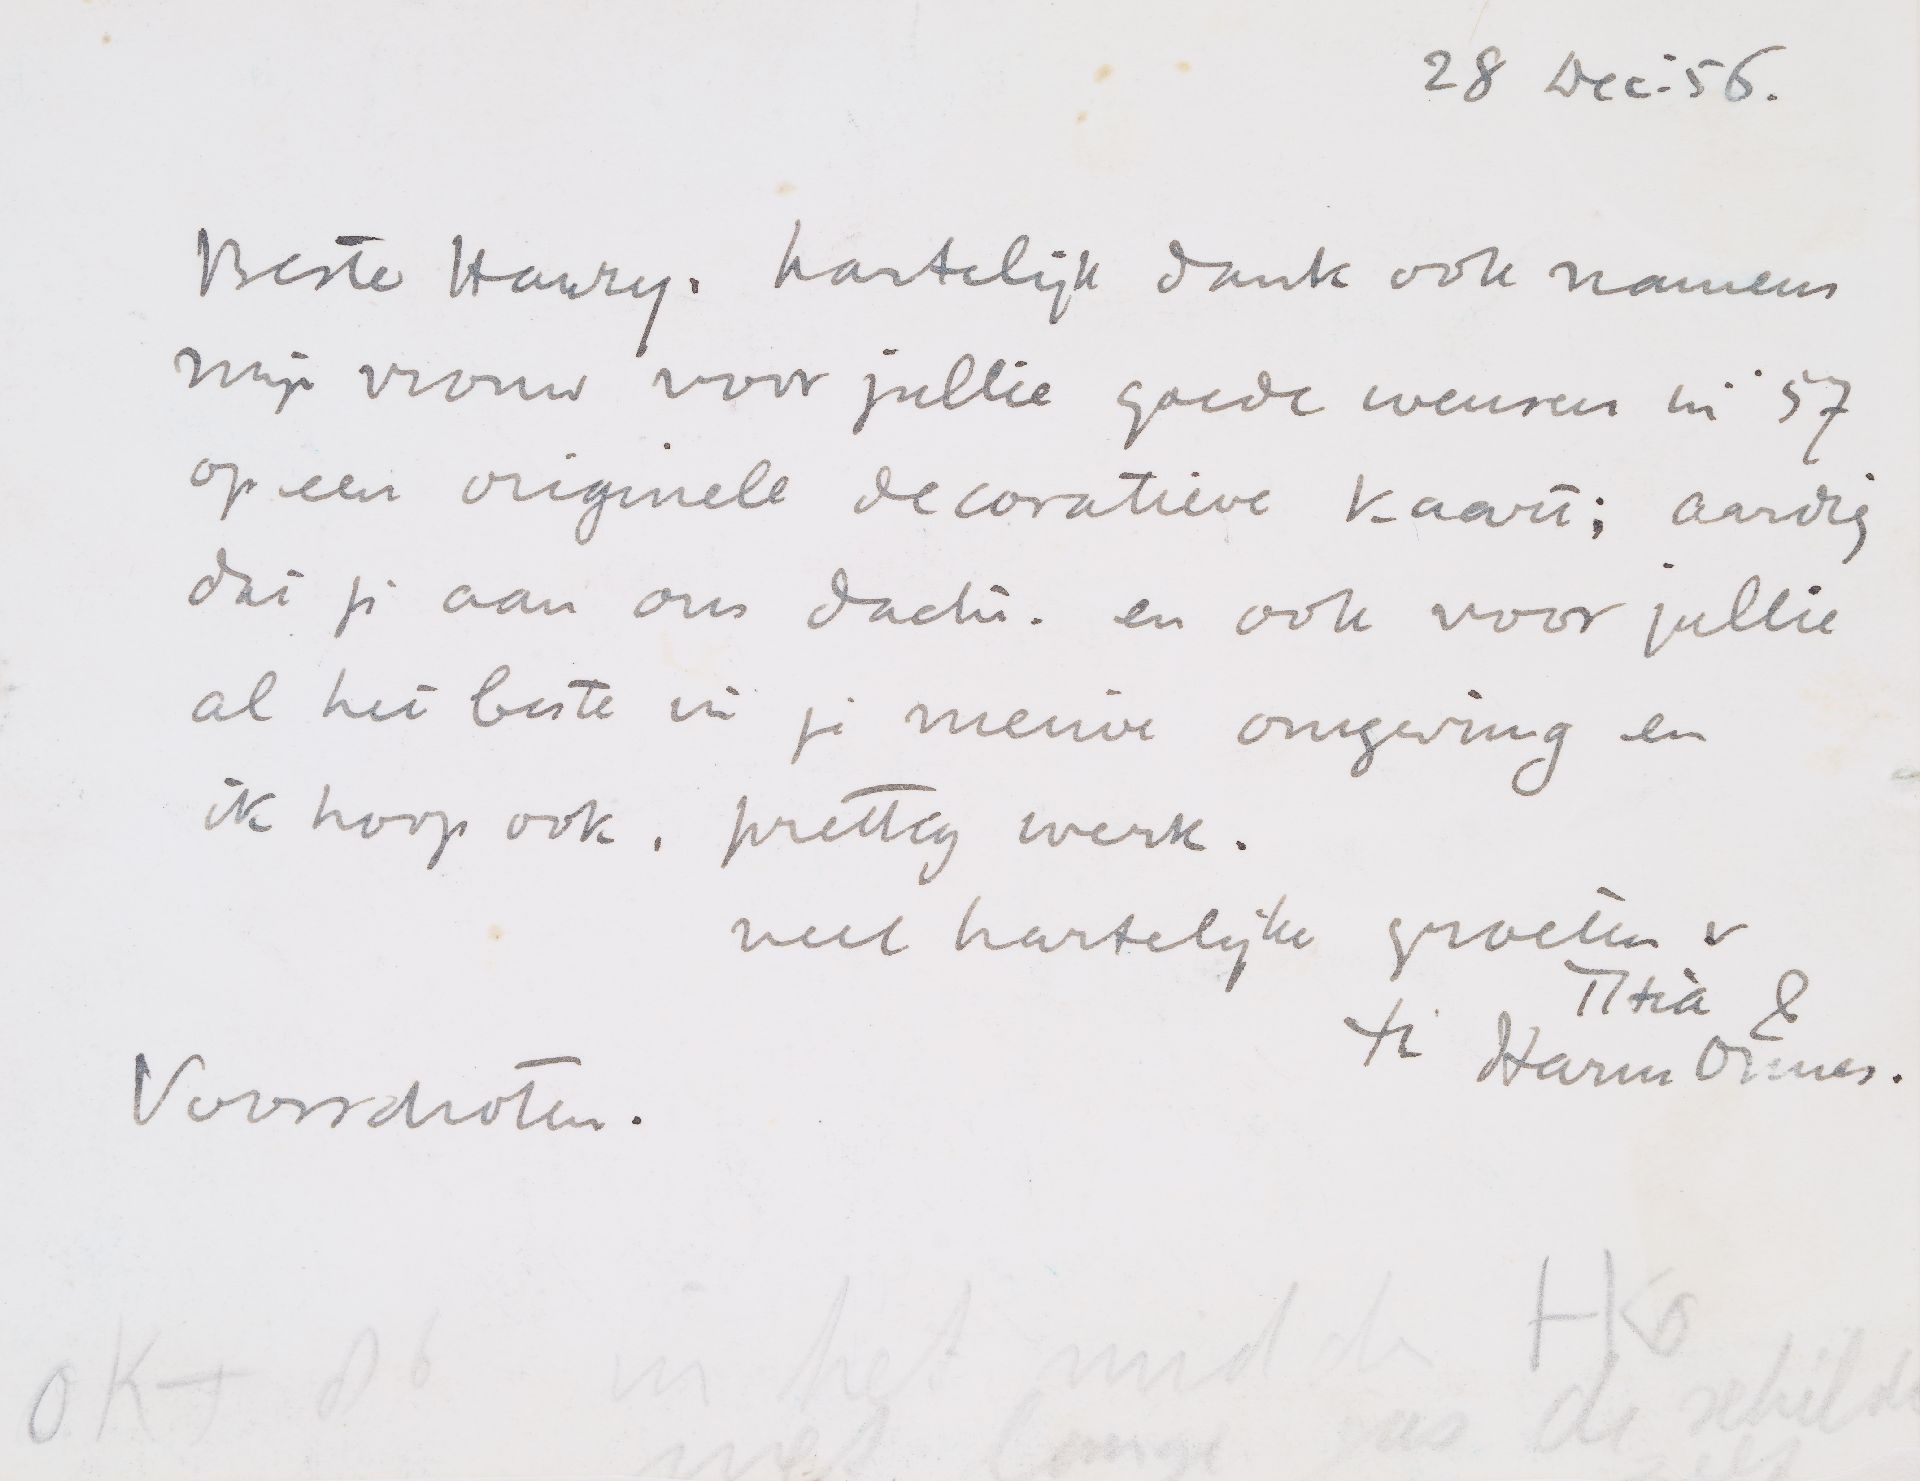 28 Dec. 56.
Beste Hanry. hartelijk dank ook namens
mijn vrouw voor jullie goede wensen in '57
op een originele decoratieve kaart; aardig
dat je aan ons dacht. en ook voor jullie
al het beste in je nieuwe omgeving en
ik hoop ook, prettig werk.
veel hartelijke groeten v
Titia &
tt Harm Ormes.
Voorschoten.
HKO
OKT 86 in het midden
met lange jas de schilder